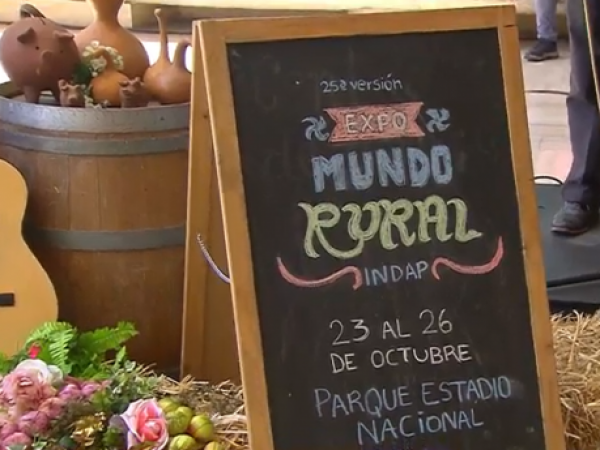 25ª versión
EXPO
MUNDO
RURAL
INDAP
23 AL 26
DE OCTUBRE
PARQUE ESTADIO
NACIONAL